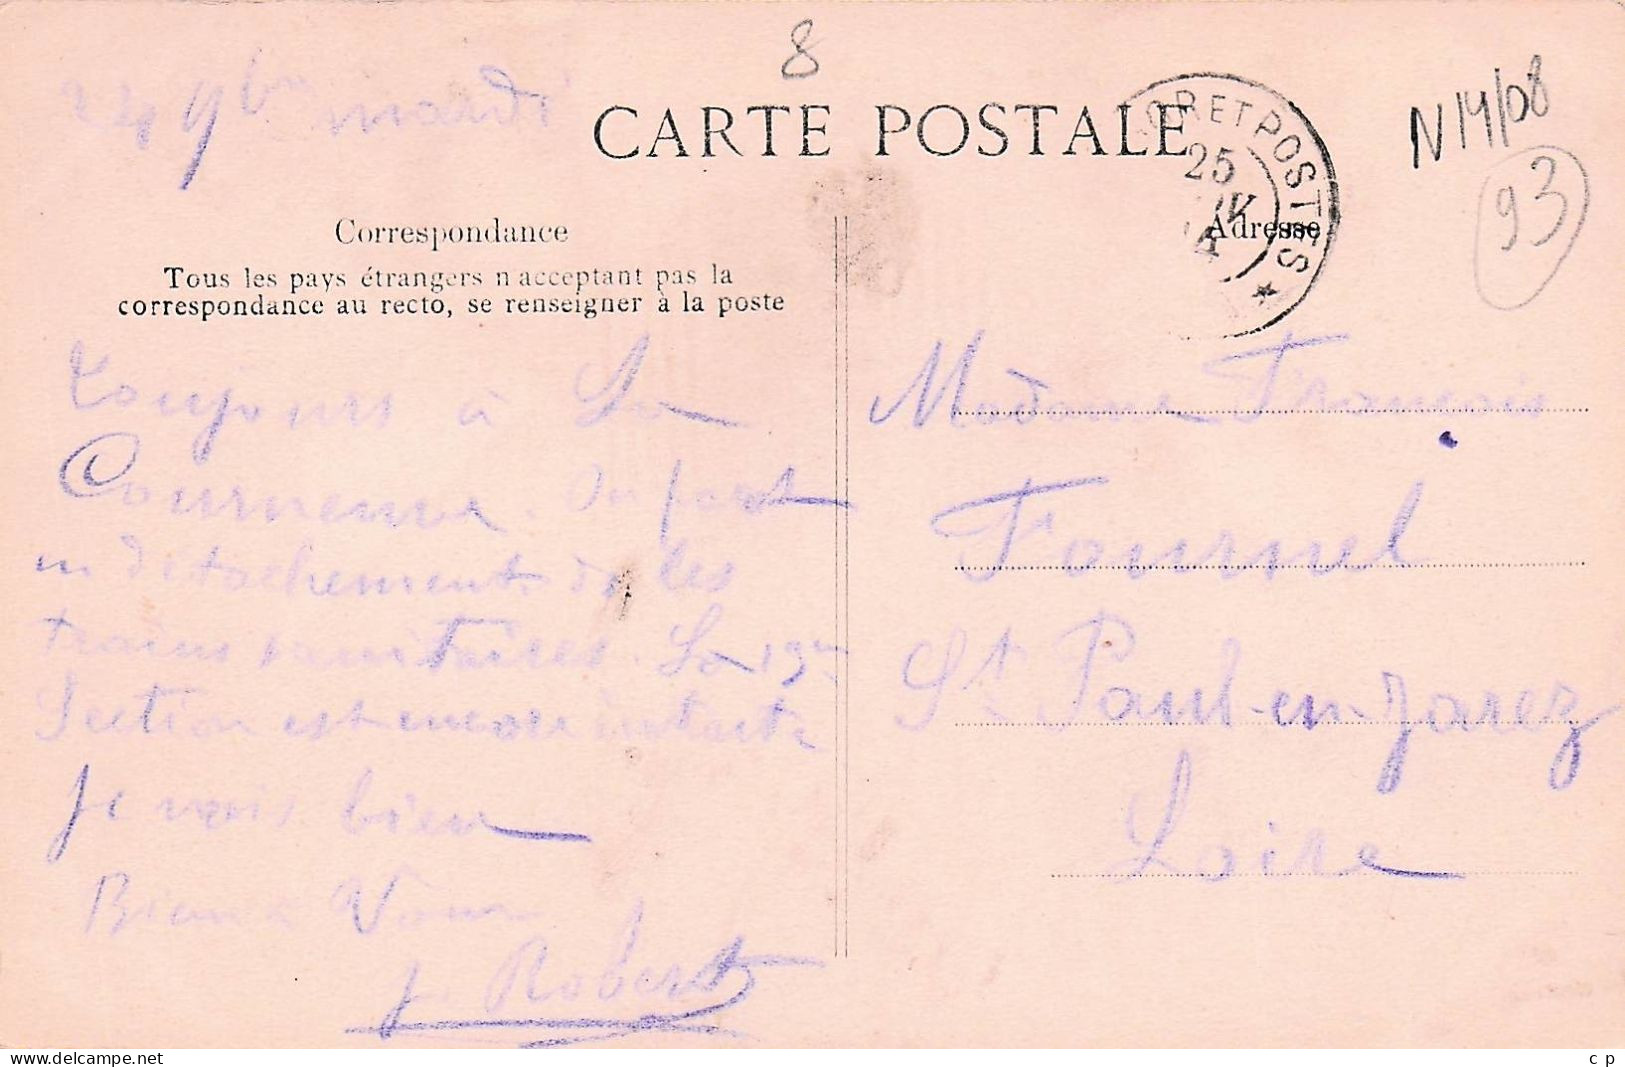 8
24 9bre mardi
CARTE POSTALE
TRESOR ET POSTES ★
25
N14/08
93
Correspondance
Adresse
Tous les pays étrangers n'acceptant pas la
correspondance au recto, se renseigner à la poste
Toujours à La
Courneuve. On fait
un détachement de les
trains sanitaires. La 19me
Section est encore intacte
Je vais bien
Bien à Vous
J. Robert
Madame François
Fournel
St Paul-en-Jarez
Loire
www.delcampe.net
c p